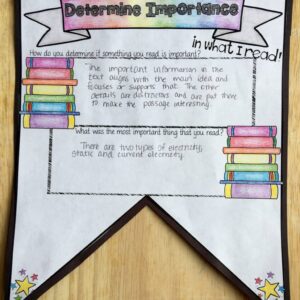 Determine Importance
in what I read!
How do you determine if something you read is important?
The important information in the
text aligns with the main idea and
focuses or supports that. The other
details are distractors and are put there
to make the passage interesting.
What was the most important thing that you read?
There are two types of electricity,
static and current electricity.